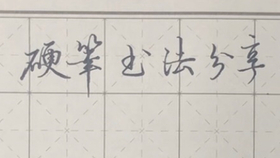 硬筆书法分享